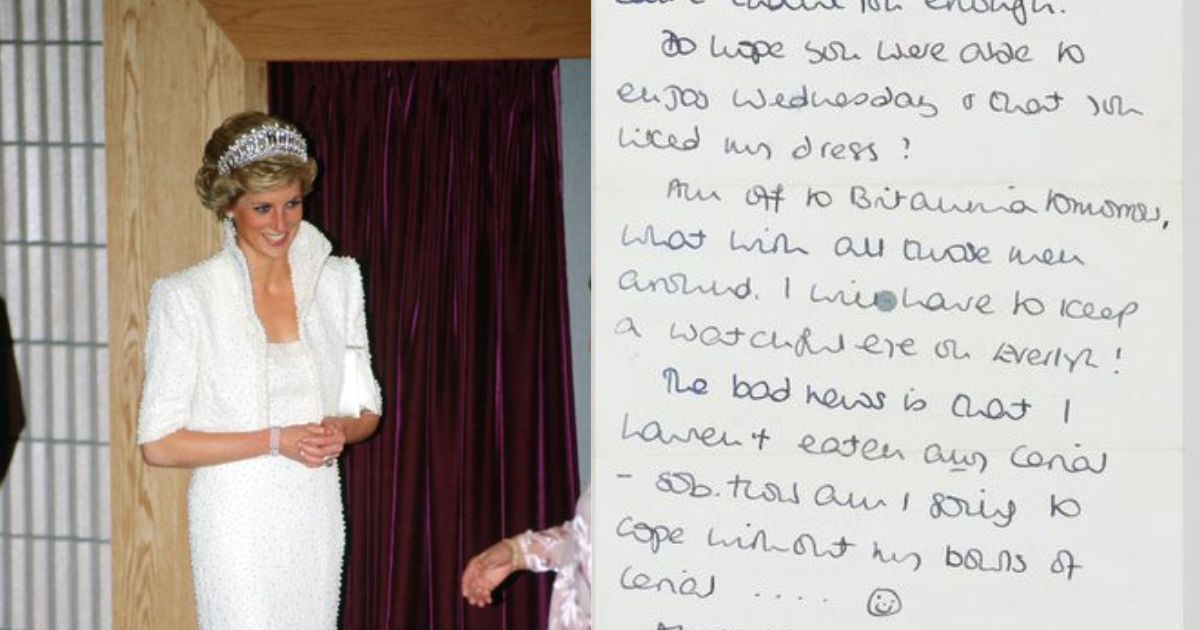 can't thank you enough.
Do hope you were able to
enjoy Wednesday & that you
liked my dress ?
Am off to Britannia tomorrow,
what with all those men
around. I will have to keep
a watchful eye on Everlyn !
The bad news is that I
haven't eaten any cerial
- sob. How am I going to
cope without my bowls of
cerial .... ☺